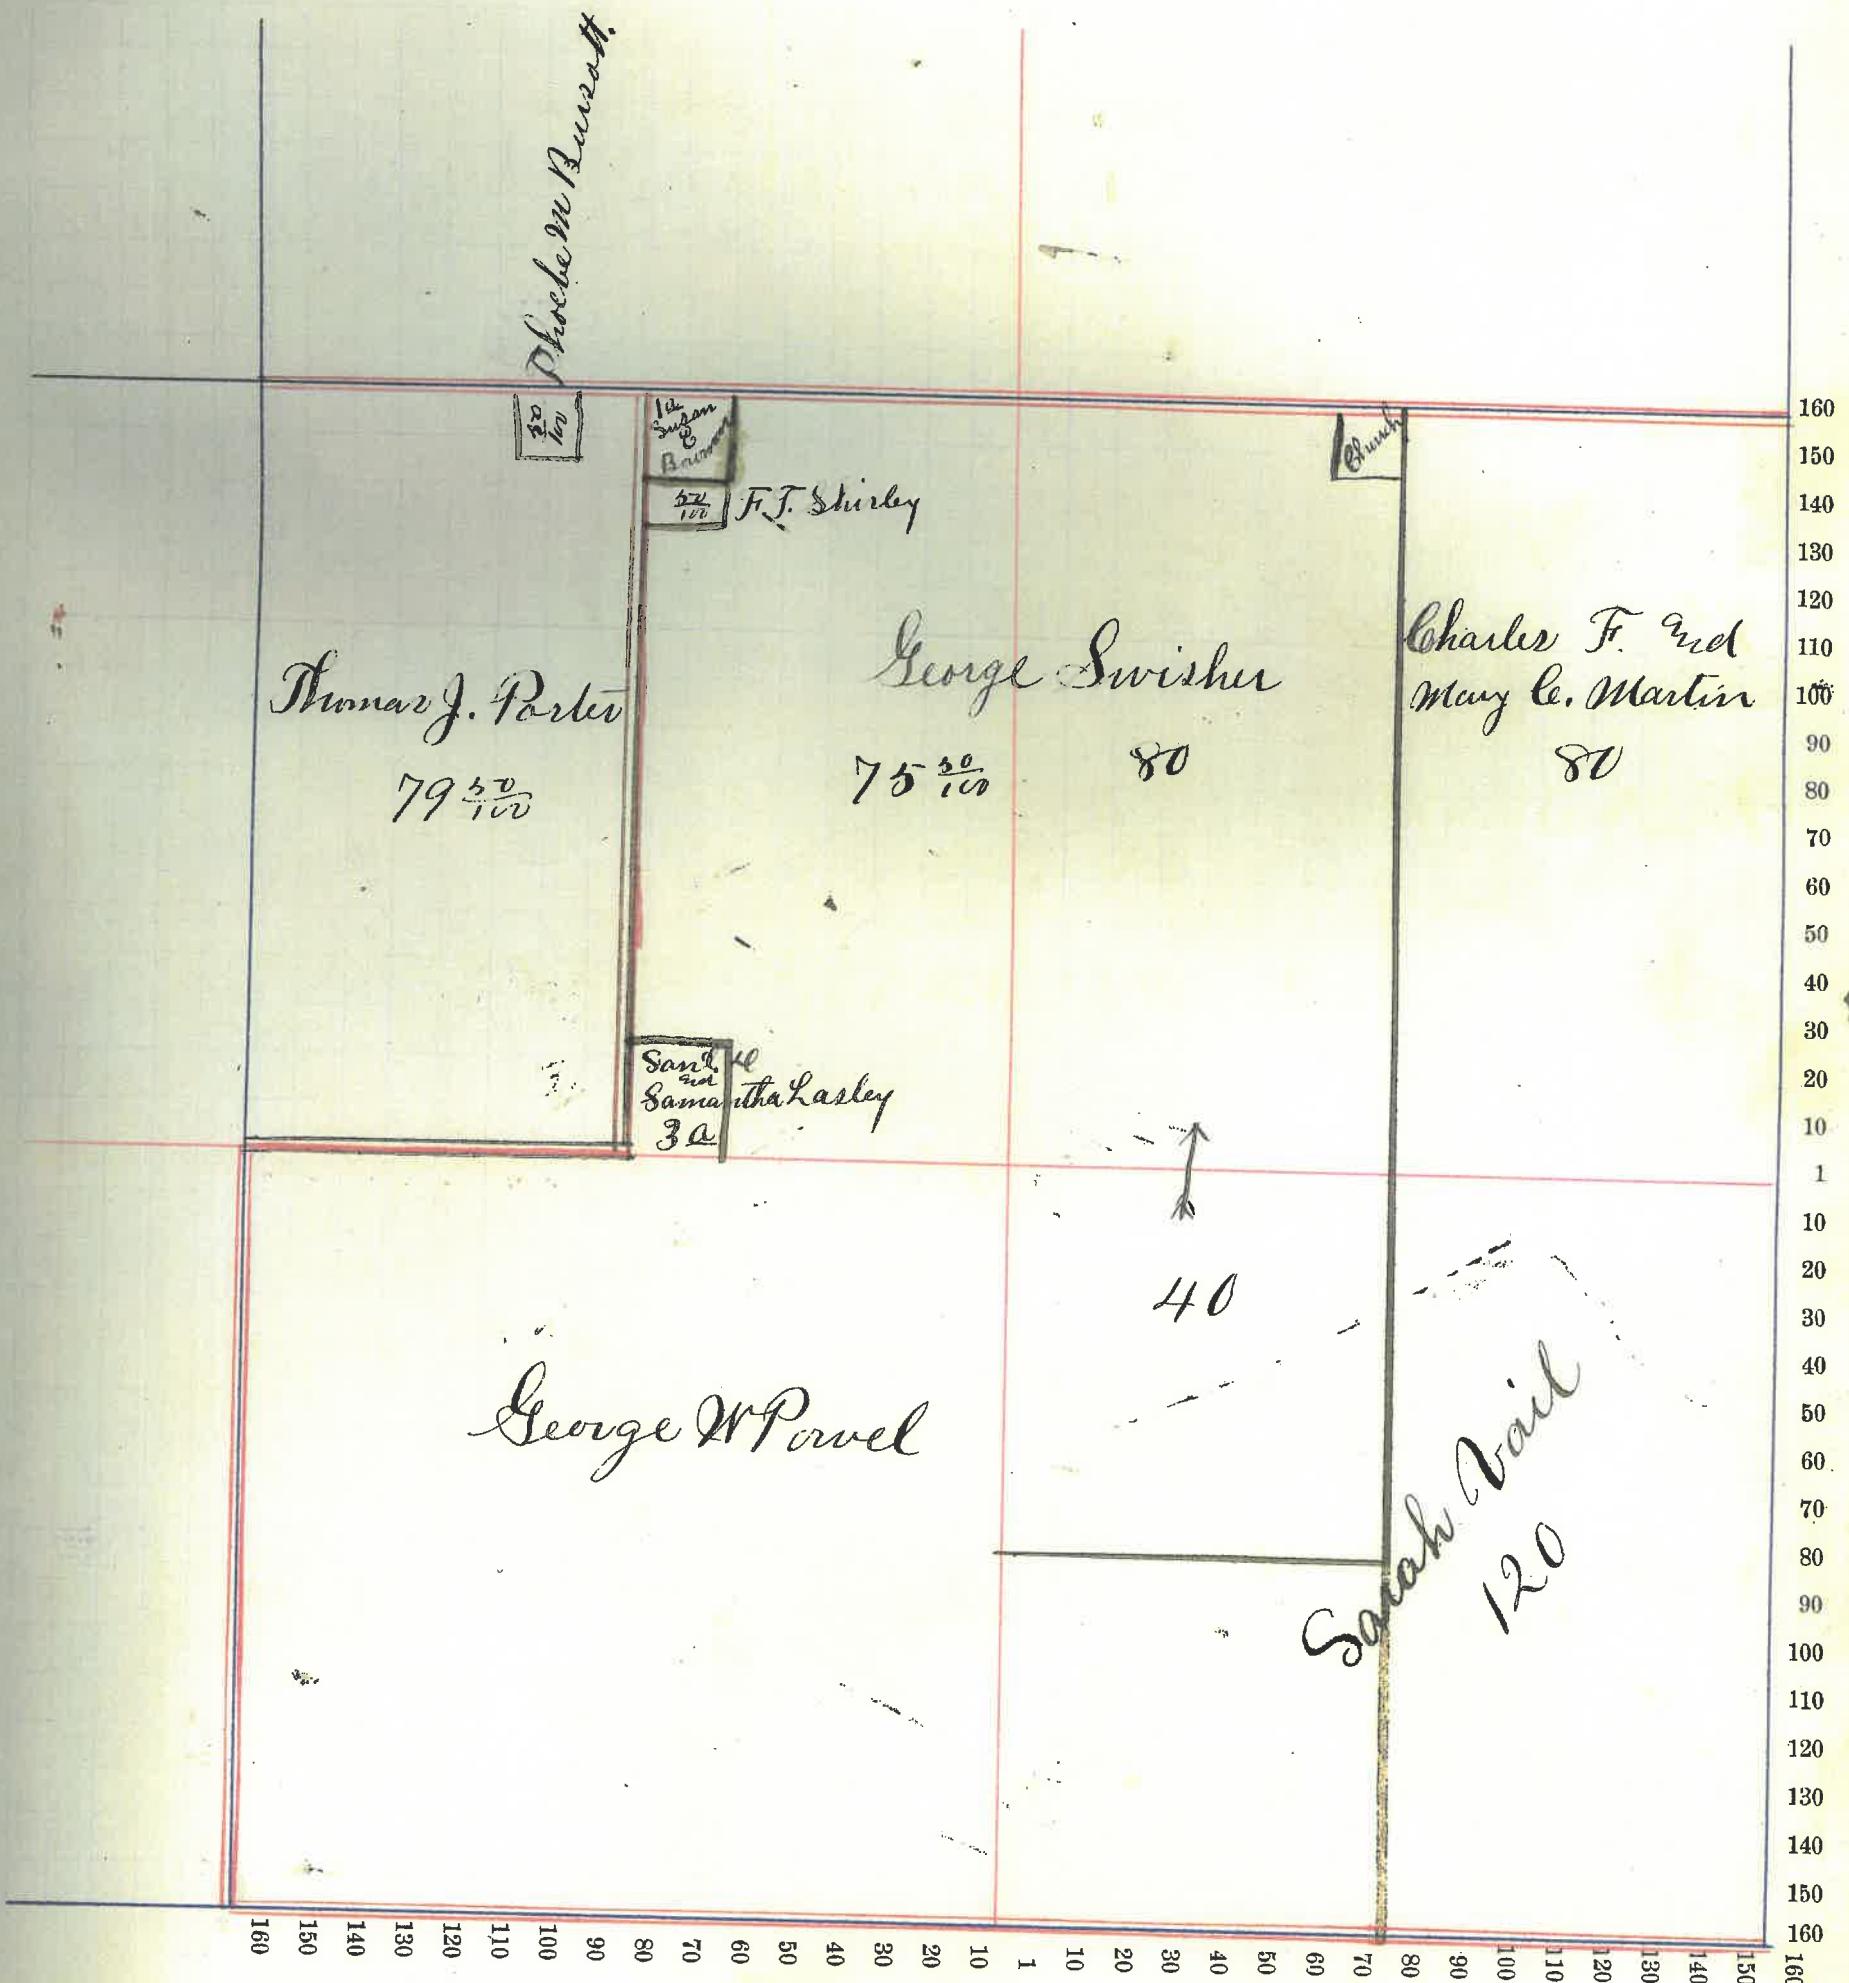 Phoebe M
50/100
1a
Susan
E
Brown
50/100
F. T. Shirley
Church
Thomas J. Porter
79 50/100
George Swisher
75 50/100
80
Charles F. and
Mary C. Martin
80
Saml
and
Samantha Lasley
3a
40
George W Powel
Sarah Vail
120
160
150
140
130
120
110
100
90
80
70
60
50
40
30
20
10
1
10
20
30
40
50
60
70
80
90
100
110
120
130
140
150
160
160 150 140 130 120 110 100 90 80 70 60 50 40 30 20 10 1 10 20 30 40 50 60 70 80 90 100 110 120 130 140 150 160